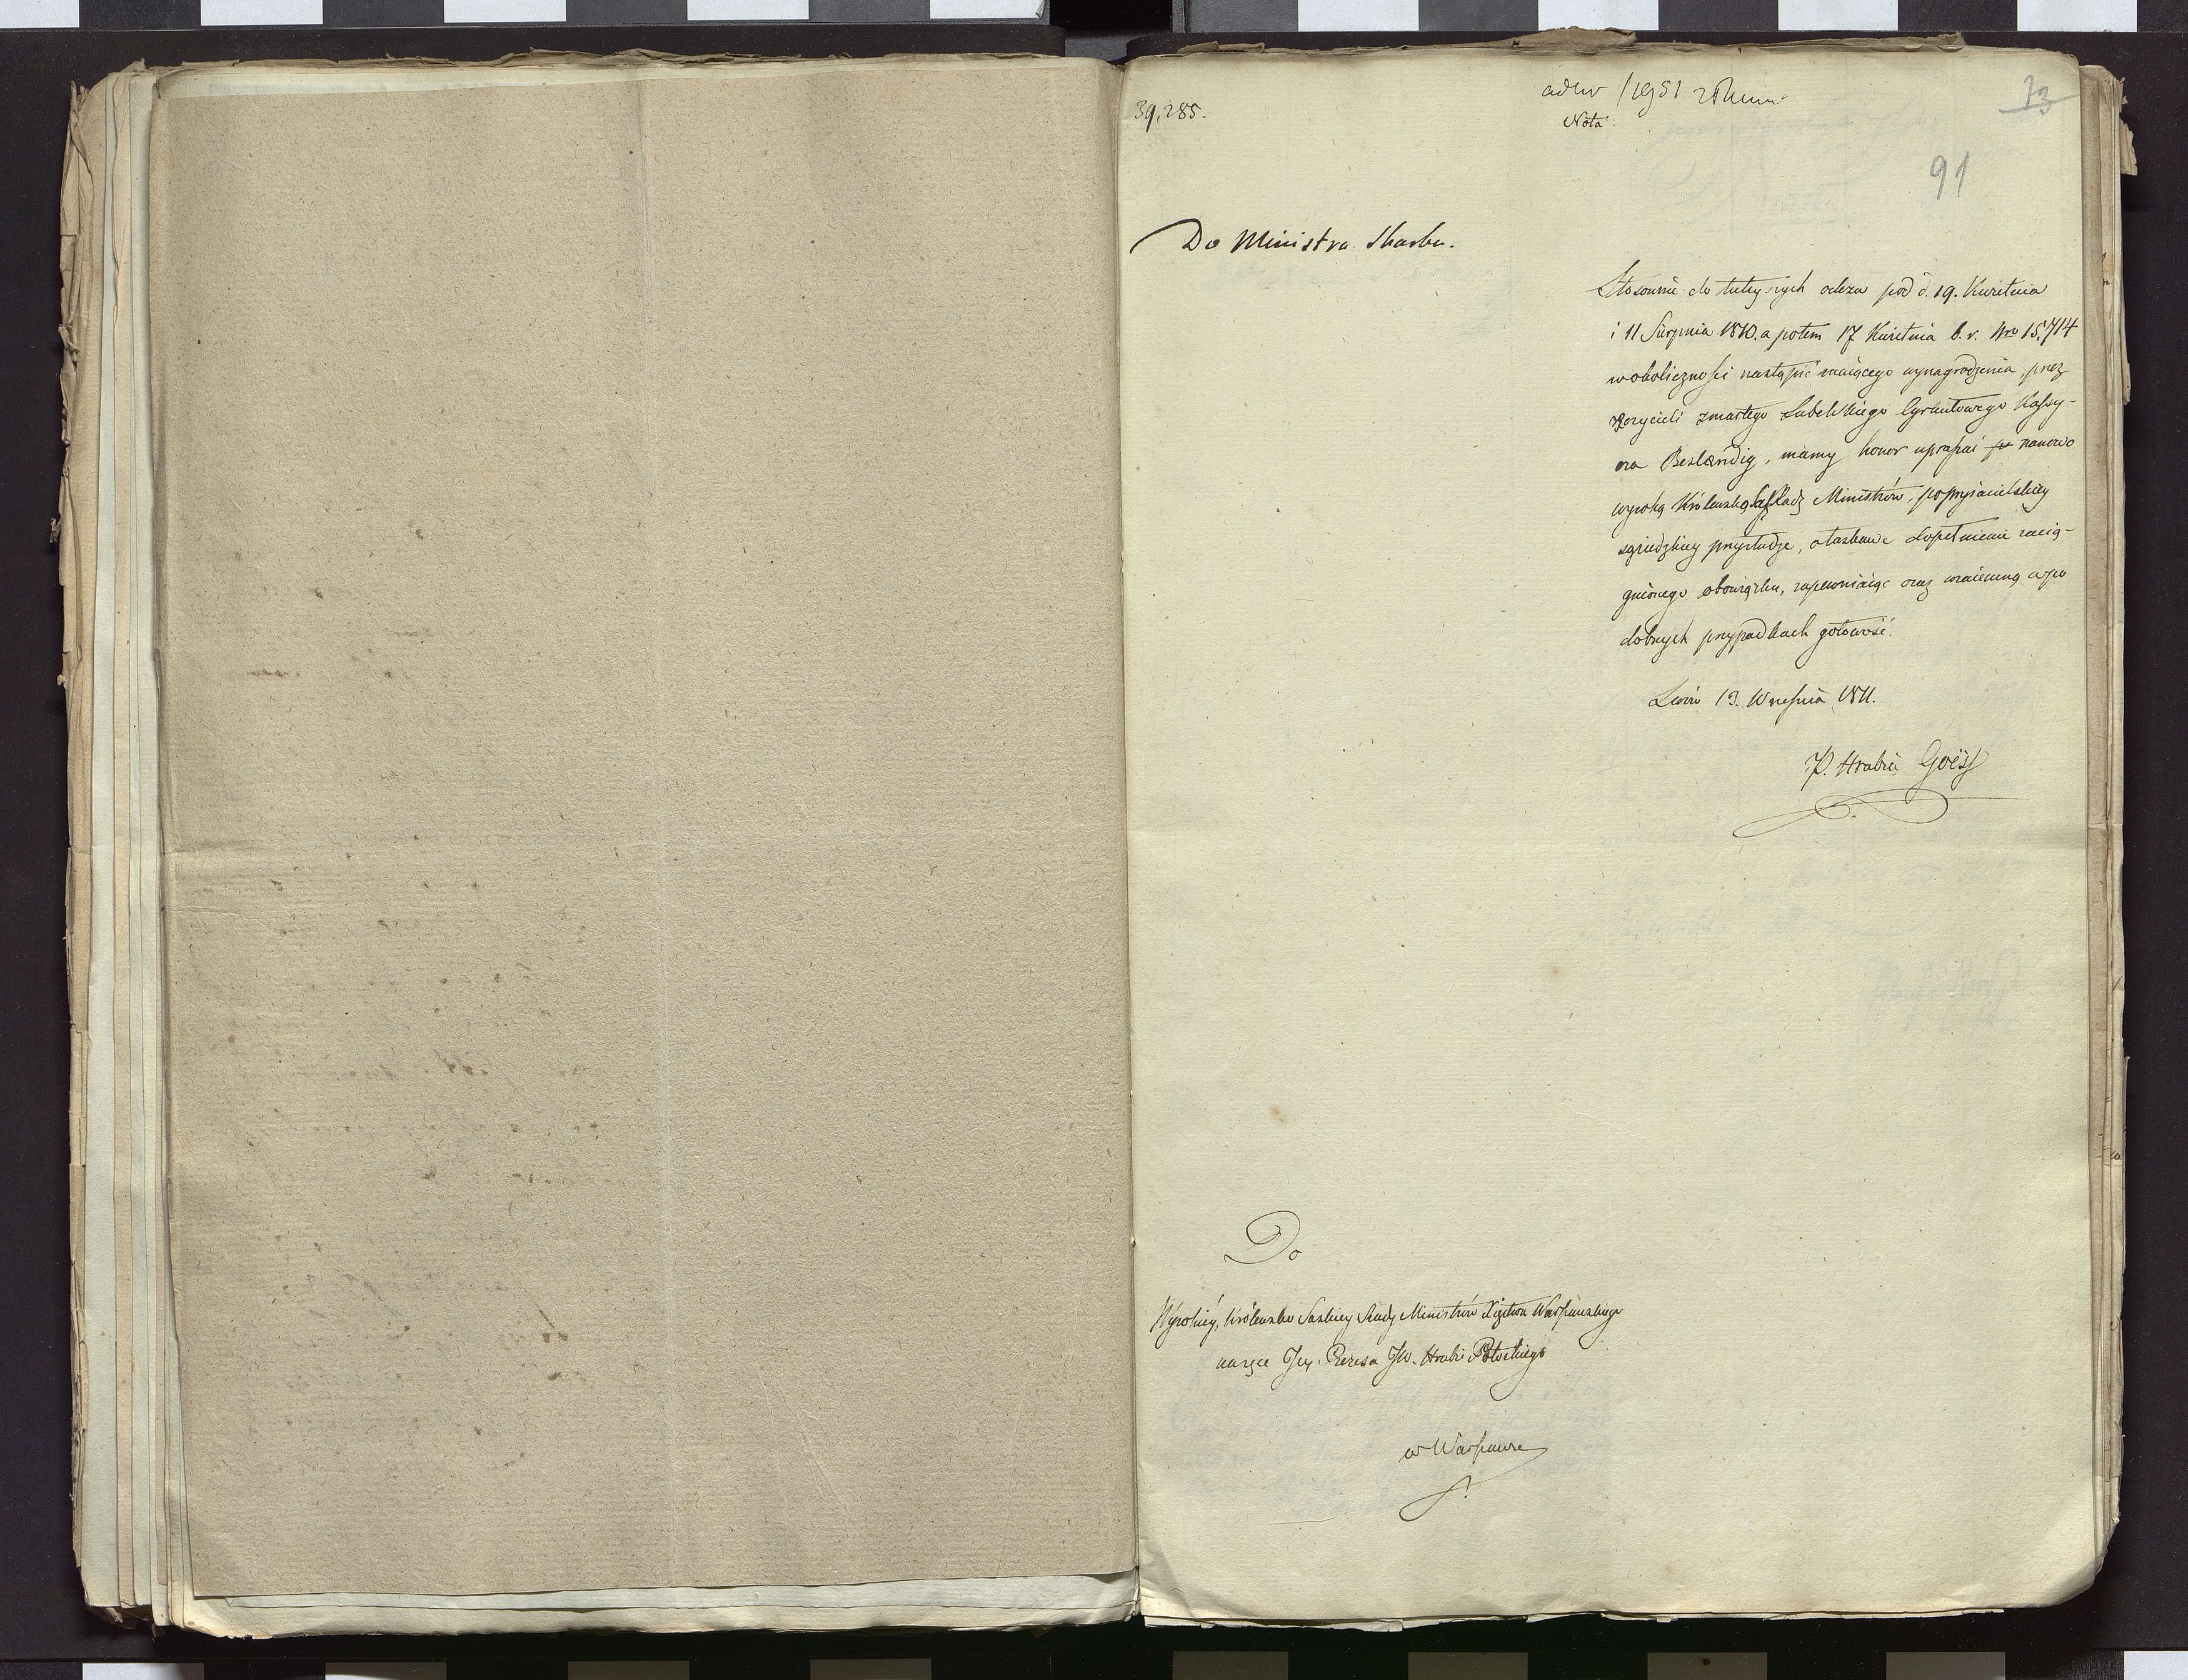 39,285.
Nota
73
91
Do Ministra Skarbu.
Stosownie do tuteyszych odezw pod d. 19. Kwietnia
i 11 Sierpnia 1810. a potem 17 Kwietnia b. r. Nro 15,714
w okoliczności nastąpić maiącego wynagrodzenia, przez
zmarłego Lubelskiego Cyrkułowego Kassy-
ora Bestændig, mamy honor upraszać nanowo
wysoką Królewsko Radę Ministrów, po przyiacielskiey
sąsiedzkiey przysłudze, o łaskawe dopełnienie zacią-
gnionego obowiązku, zapewniaiąc oraz wzaiemną w po
dobnych przypadkach gotowość.
Lwów 13. Września 1811.
P. Hrabia Goëss
Do
Wysokiey, Królewsko Saskiey Rady Ministrów Xięstwa Warszawskiego
na ręce Prezesa JW. Hrabi Potockiego
w Warszawie